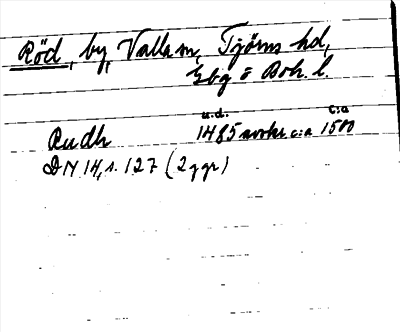 Röd, by, Valla sn, Tjörns hd,
Gbg o Boh. l.
u.d. c:a
Rudh 1485 avskr c:a 1500
DN 14, s. 127 (2 ggr)